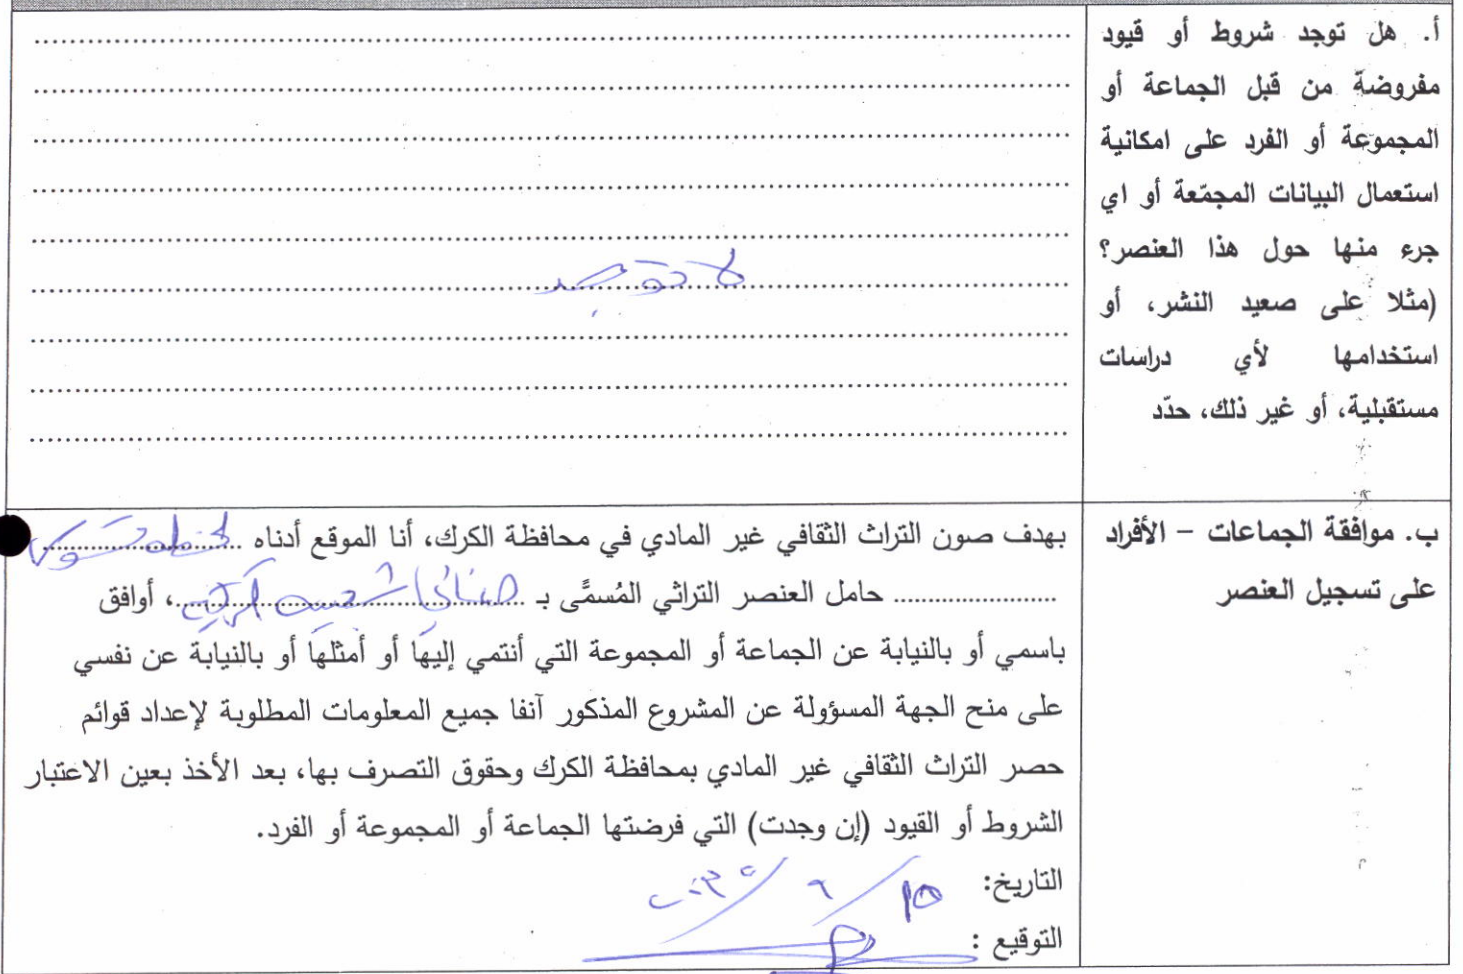 أ. هل توجد شروط أو قيود
مفروضة من قبل الجماعة أو
المجموعة أو الفرد على امكانية
استعمال البيانات المجمّعة أو اي
جرء منها حول هذا العنصر؟
(مثلا على صعيد النشر، أو
استخدامها لأي دراسات
مستقبلية، أو غير ذلك، حدّد
لا توجد
ب. موافقة الجماعات – الأفراد
على تسجيل العنصر
بهدف صون التراث الثقافي غير المادي في محافظة الكرك، أنا الموقع أدناه
حامل العنصر التراثي المُسمَّى بـ ، أوافق
باسمي أو بالنيابة عن الجماعة أو المجموعة التي أنتمي إليها أو أمثلها أو بالنيابة عن نفسي
على منح الجهة المسؤولة عن المشروع المذكور آنفا جميع المعلومات المطلوبة لإعداد قوائم
حصر التراث الثقافي غير المادي بمحافظة الكرك وحقوق التصرف بها، بعد الأخذ بعين الاعتبار
الشروط أو القيود (إن وجدت) التي فرضتها الجماعة أو المجموعة أو الفرد.
التاريخ: ١٥ / ٩ /
التوقيع :